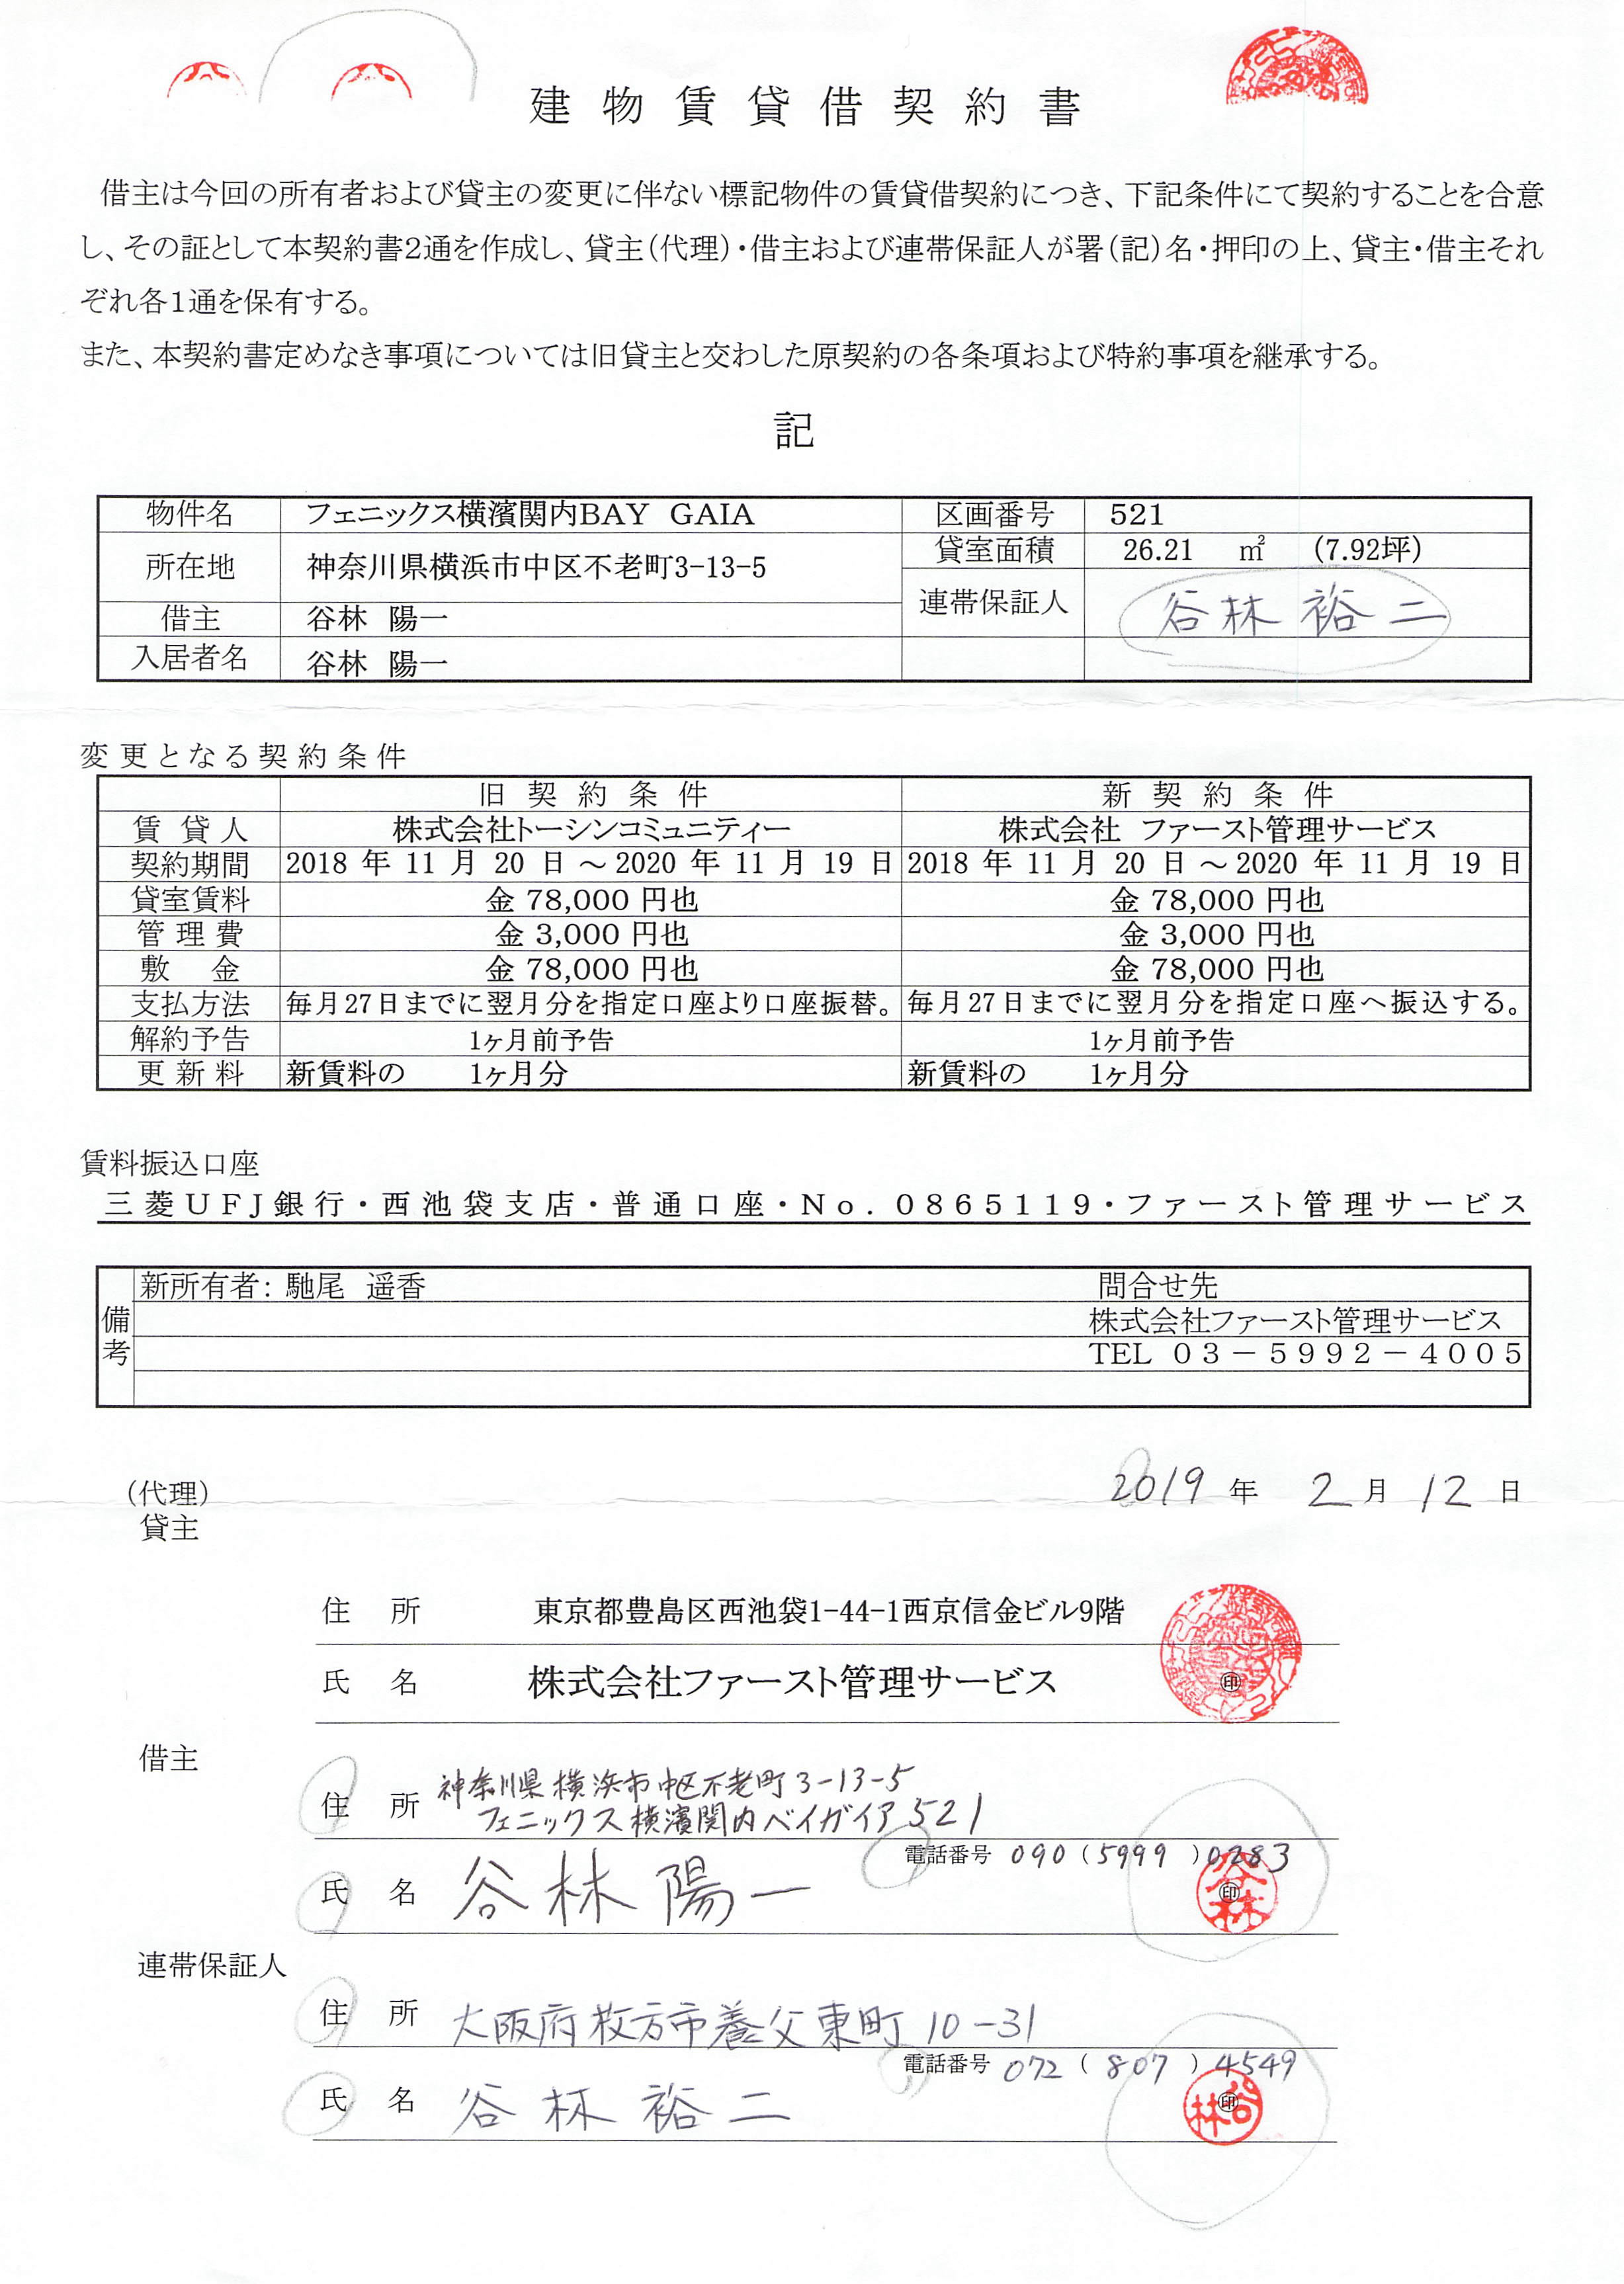 建物賃貸借契約書
借主は今回の所有者および貸主の変更に伴ない標記物件の賃貸借契約につき、下記条件にて契約することを合意
し、その証として本契約書2通を作成し、貸主(代理)・借主および連帯保証人が署(記)名・押印の上、貸主・借主それ
ぞれ各1通を保有する。
また、本契約書定めなき事項については旧貸主と交わした原契約の各条項および特約事項を継承する。
記
物件名 フェニックス横濱関内BAY GAIA 区画番号 521
所在地 神奈川県横浜市中区不老町3-13-5 貸室面積 26.21 ㎡ (7.92坪)
借主 谷林 陽一 連帯保証人 谷林 裕二
入居者名 谷林 陽一
変更となる契約条件
旧契約条件 新契約条件
賃貸人 株式会社トーシンコミュニティー 株式会社 ファースト管理サービス
契約期間 2018 年 11 月 20 日 ～2020 年 11 月 19 日 2018 年 11 月 20 日 ～2020 年 11 月 19 日
貸室賃料 金 78,000 円也 金 78,000 円也
管理費 金 3,000 円也 金 3,000 円也
敷金 金 78,000 円也 金 78,000 円也
支払方法 毎月27日までに翌月分を指定口座より口座振替。 毎月27日までに翌月分を指定口座へ振込する。
解約予告 1ヶ月前予告 1ヶ月前予告
更新料 新賃料の 1ヶ月分 新賃料の 1ヶ月分
賃料振込口座
三菱UFJ銀行・西池袋支店・普通口座・No. 0865119・ファースト管理サービス
備考 新所有者: 馳尾 遥香 問合せ先
株式会社ファースト管理サービス
TEL 03－5992－4005
2019 年 2 月 12 日
(代理)
貸主
住所 東京都豊島区西池袋1-44-1西京信金ビル9階
氏名 株式会社ファースト管理サービス 印
借主
住所 神奈川県横浜市中区不老町3-13-5
フェニックス横濱関内ベイガイア521
電話番号 090 (5999) 0283
氏名 谷林 陽一 印 谷林
連帯保証人
住所 大阪府枚方市養父東町10-31
電話番号 072 (807) 4549
氏名 谷林 裕二 印 谷林